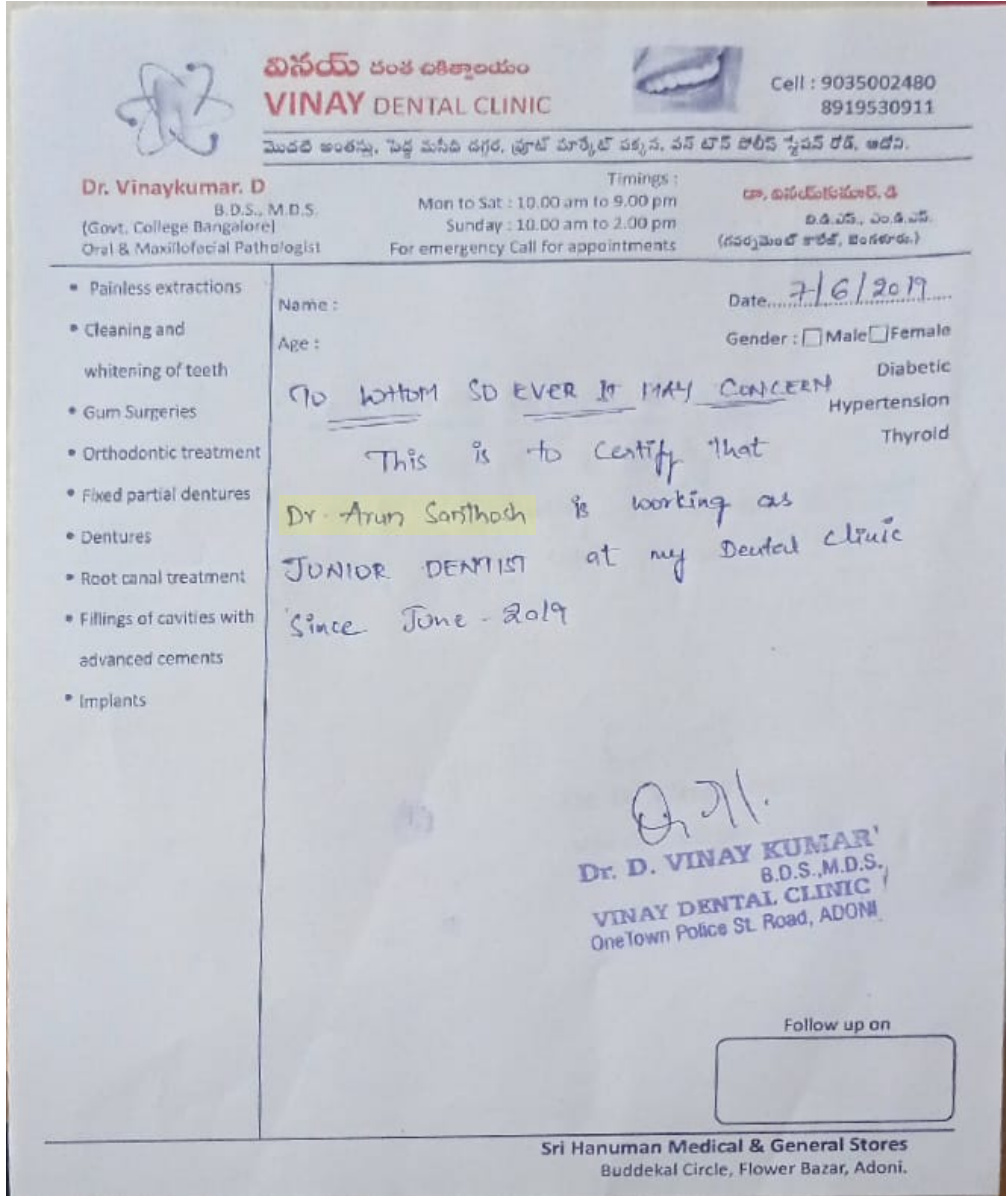 వినయ్ దంత చికిత్సాలయం
VINAY DENTAL CLINIC
Cell : 9035002480
8919530911
మొదటి అంతస్తు, పెద్ద మసీదు దగ్గర, ఫ్రూట్ మార్కెట్ పక్కన, వన్ టౌన్ పోలీస్ స్టేషన్ రోడ్, ఆదోని.
Dr. Vinaykumar. D
B.D.S., M.D.S.
(Govt. College Bangalore)
Oral & Maxillofacial Pathologist
Timings :
Mon to Sat : 10.00 am to 9.00 pm
Sunday : 10.00 am to 2.00 pm
For emergency Call for appointments
డా. వినయ్‌కుమార్. డి
బి.డి.ఎస్., ఎం.డి.ఎస్.
(గవర్నమెంట్ కాలేజ్, బెంగళూరు.)
• Painless extractions
• Cleaning and
whitening of teeth
• Gum Surgeries
• Orthodontic treatment
• Fixed partial dentures
• Dentures
• Root canal treatment
• Fillings of cavities with
advanced cements
• Implants
Name :
Date 7/6/2019
Age :
Gender : Male Female
Diabetic
Hypertension
Thyroid
TO WHOM SO EVER IT MAY CONCERN
This is to certify that
Dr. Arun Santhosh is working as
JUNIOR DENTIST at my Dental Clinic
Since June - 2019
Dr. D. VINAY KUMAR
B.D.S.,M.D.S.
VINAY DENTAL CLINIC
OneTown Police St. Road, ADONI
Follow up on
Sri Hanuman Medical & General Stores
Buddekal Circle, Flower Bazar, Adoni.